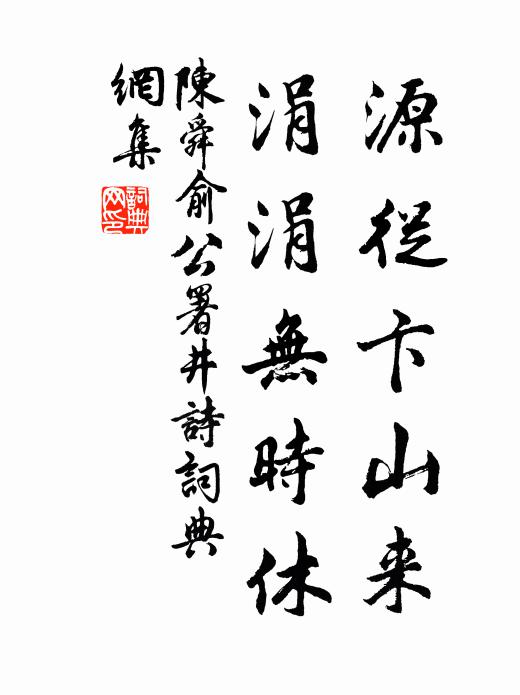 源從卞山来
涓涓無時休
陳舜俞公署井詩詞典
網集
詞典
网印